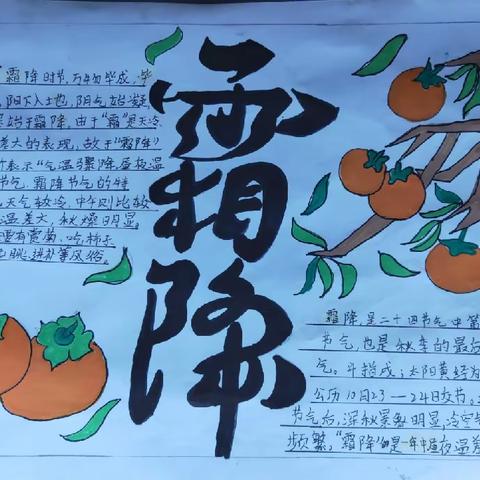 霜降
霜降时节,万物毕成,毕
,阳下入土地,阴气始凝,
始于霜降,由于"霜"是天冷
差大的表现,故于"霜降"
表示"气温骤降昼夜温
节气。霜降节气的特
天气较冷,中午则比较
温差大,秋燥明显。
要有赏菊,吃柿子
眺,进补等风俗。
霜降,是二十四节气中第
节气,也是秋季的最后
气。斗指戌;太阳黄经为
公历10月23—24日交节。
节气后,深秋景象明显,冷空
频繁,"霜降"是一年中昼夜温差